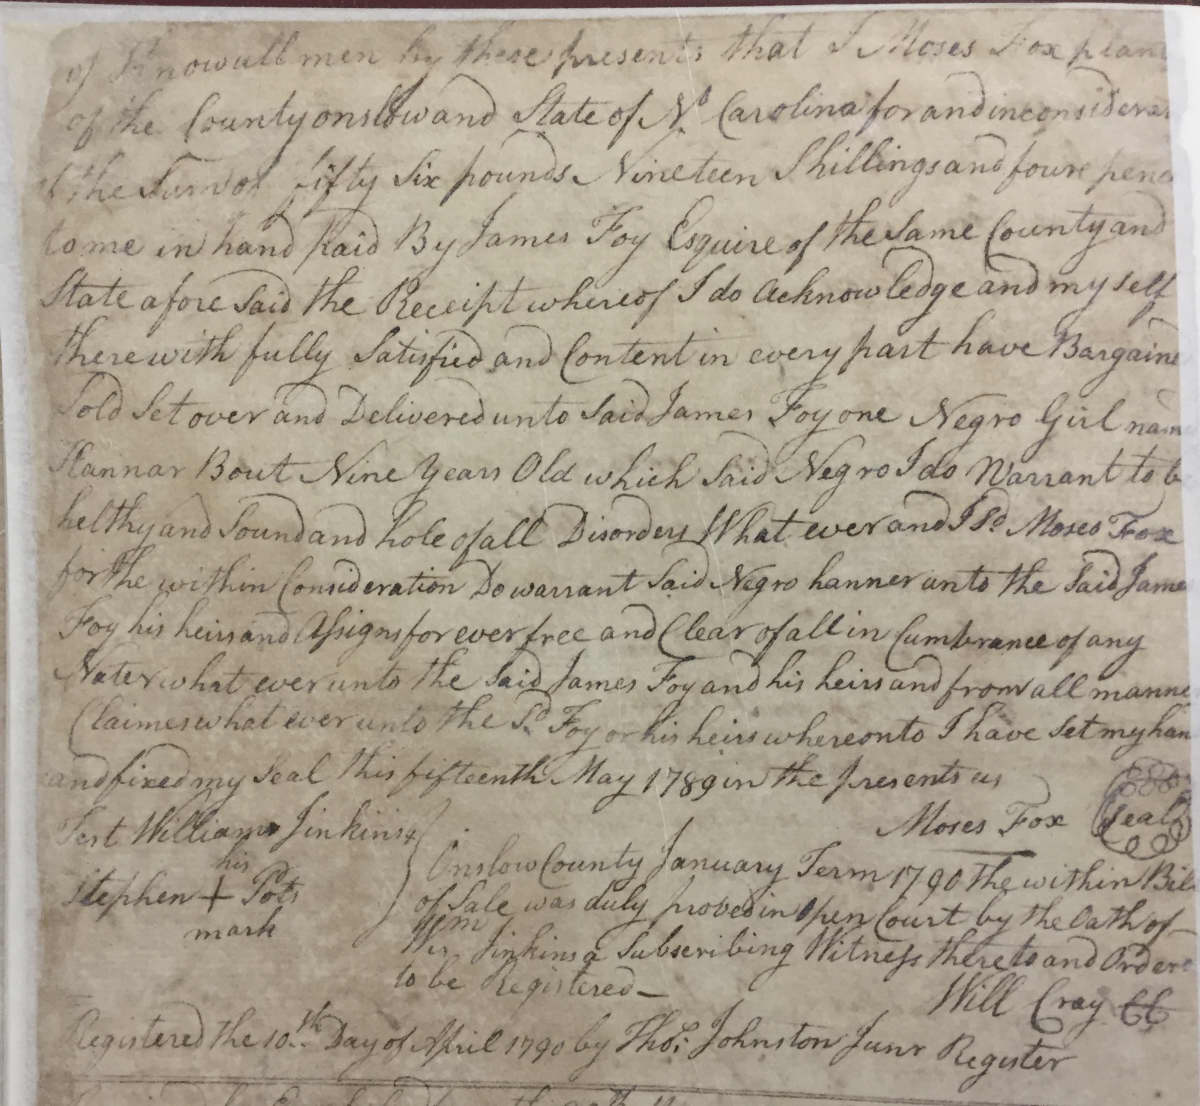 of Know all men by these presents that I Moses Fox plan
of the County onslow and State of No Carolina for and in considera
of the Sum of fifty Six pounds Nineteen Shillings and foure penc
to me in hand paid By James Foy Esquire of the Same County and
State afore Said the Receipt whereof I do acknowledge and my self
there with fully Satisfied and Content in every part have Bargaine
Sold Set over and Delivered unto Said James Foy one Negro Girl nam
Hannar Bout Nine Years Old which Said Negro I do Warrant to b
helthy and Sound and hole of all Disorders What ever and I Sd Moses Fox
for the within Consideration Do warrant Said Negro hanner unto the Said Jame
Foy his heirs and Assigns for ever free and Clear of all in Cumbrance of any
Nater what ever unto the Said James Foy and his heirs and from all manne
Claimes what ever unto the Sd Foy or his heirs whereonto I have Set my han
and fixed my Seal this fifteenth May 1789 in the presents us
Test William Jinkins
Moses Fox Seal
his
Stephen + Pots
mark
Onslow County January Term 1790 the within Bil
of Sale was duly proved in Open Court by the Oath of
Wm Jinkins a Subscribing Witness thereto and Ordere
to be Registered
Will Cray CC
Registered the 10th Day of April 1790 by Thos Johnston Junr Register